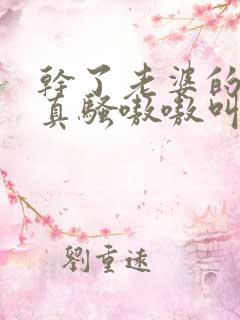 幹了老婆的
真騷嗷嗷叫
劉重遠